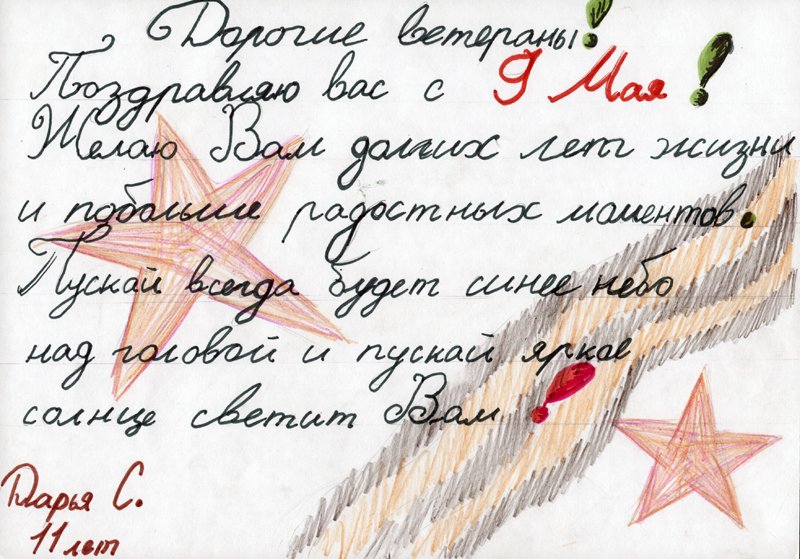 Дорогие ветераны!
Поздравляю вас с 9 Мая!
Желаю Вам долгих лет жизни
и побольше радостных моментов.
Пускай всегда будет синее небо
над головой и пускай яркое
солнце светит Вам!
Дарья С.
11 лет